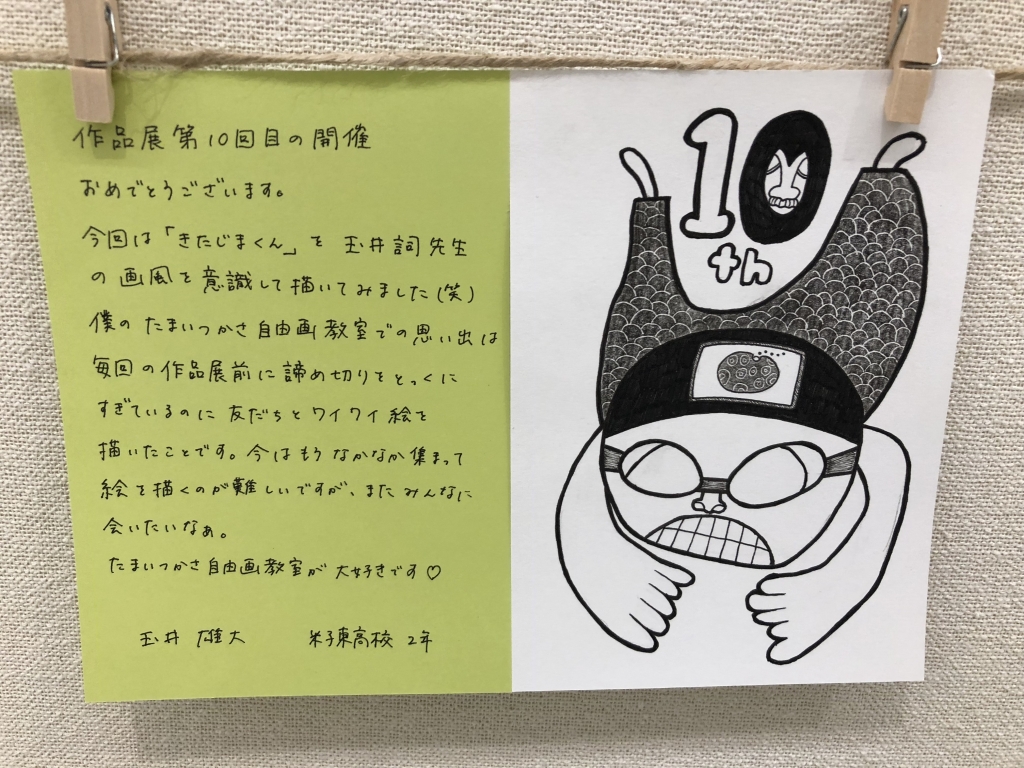 作品展第10回目の開催
おめでとうございます。
今回は「きたじまくん」を 玉井詞先生
の画風を意識して描いてみました(笑)
僕の たまいつかさ自由画教室での思い出は
毎回の作品展前に諦め切りをとっくに
すぎているのに友だちとワイワイ絵を
描いたことです。今はもう なかなか集まって
絵を描くのが難しいですが、また みんなに
会いたいなぁ。
たまいつかさ自由画教室が 大好きです♡
玉井 雄大 米子東高校 2年
10
th